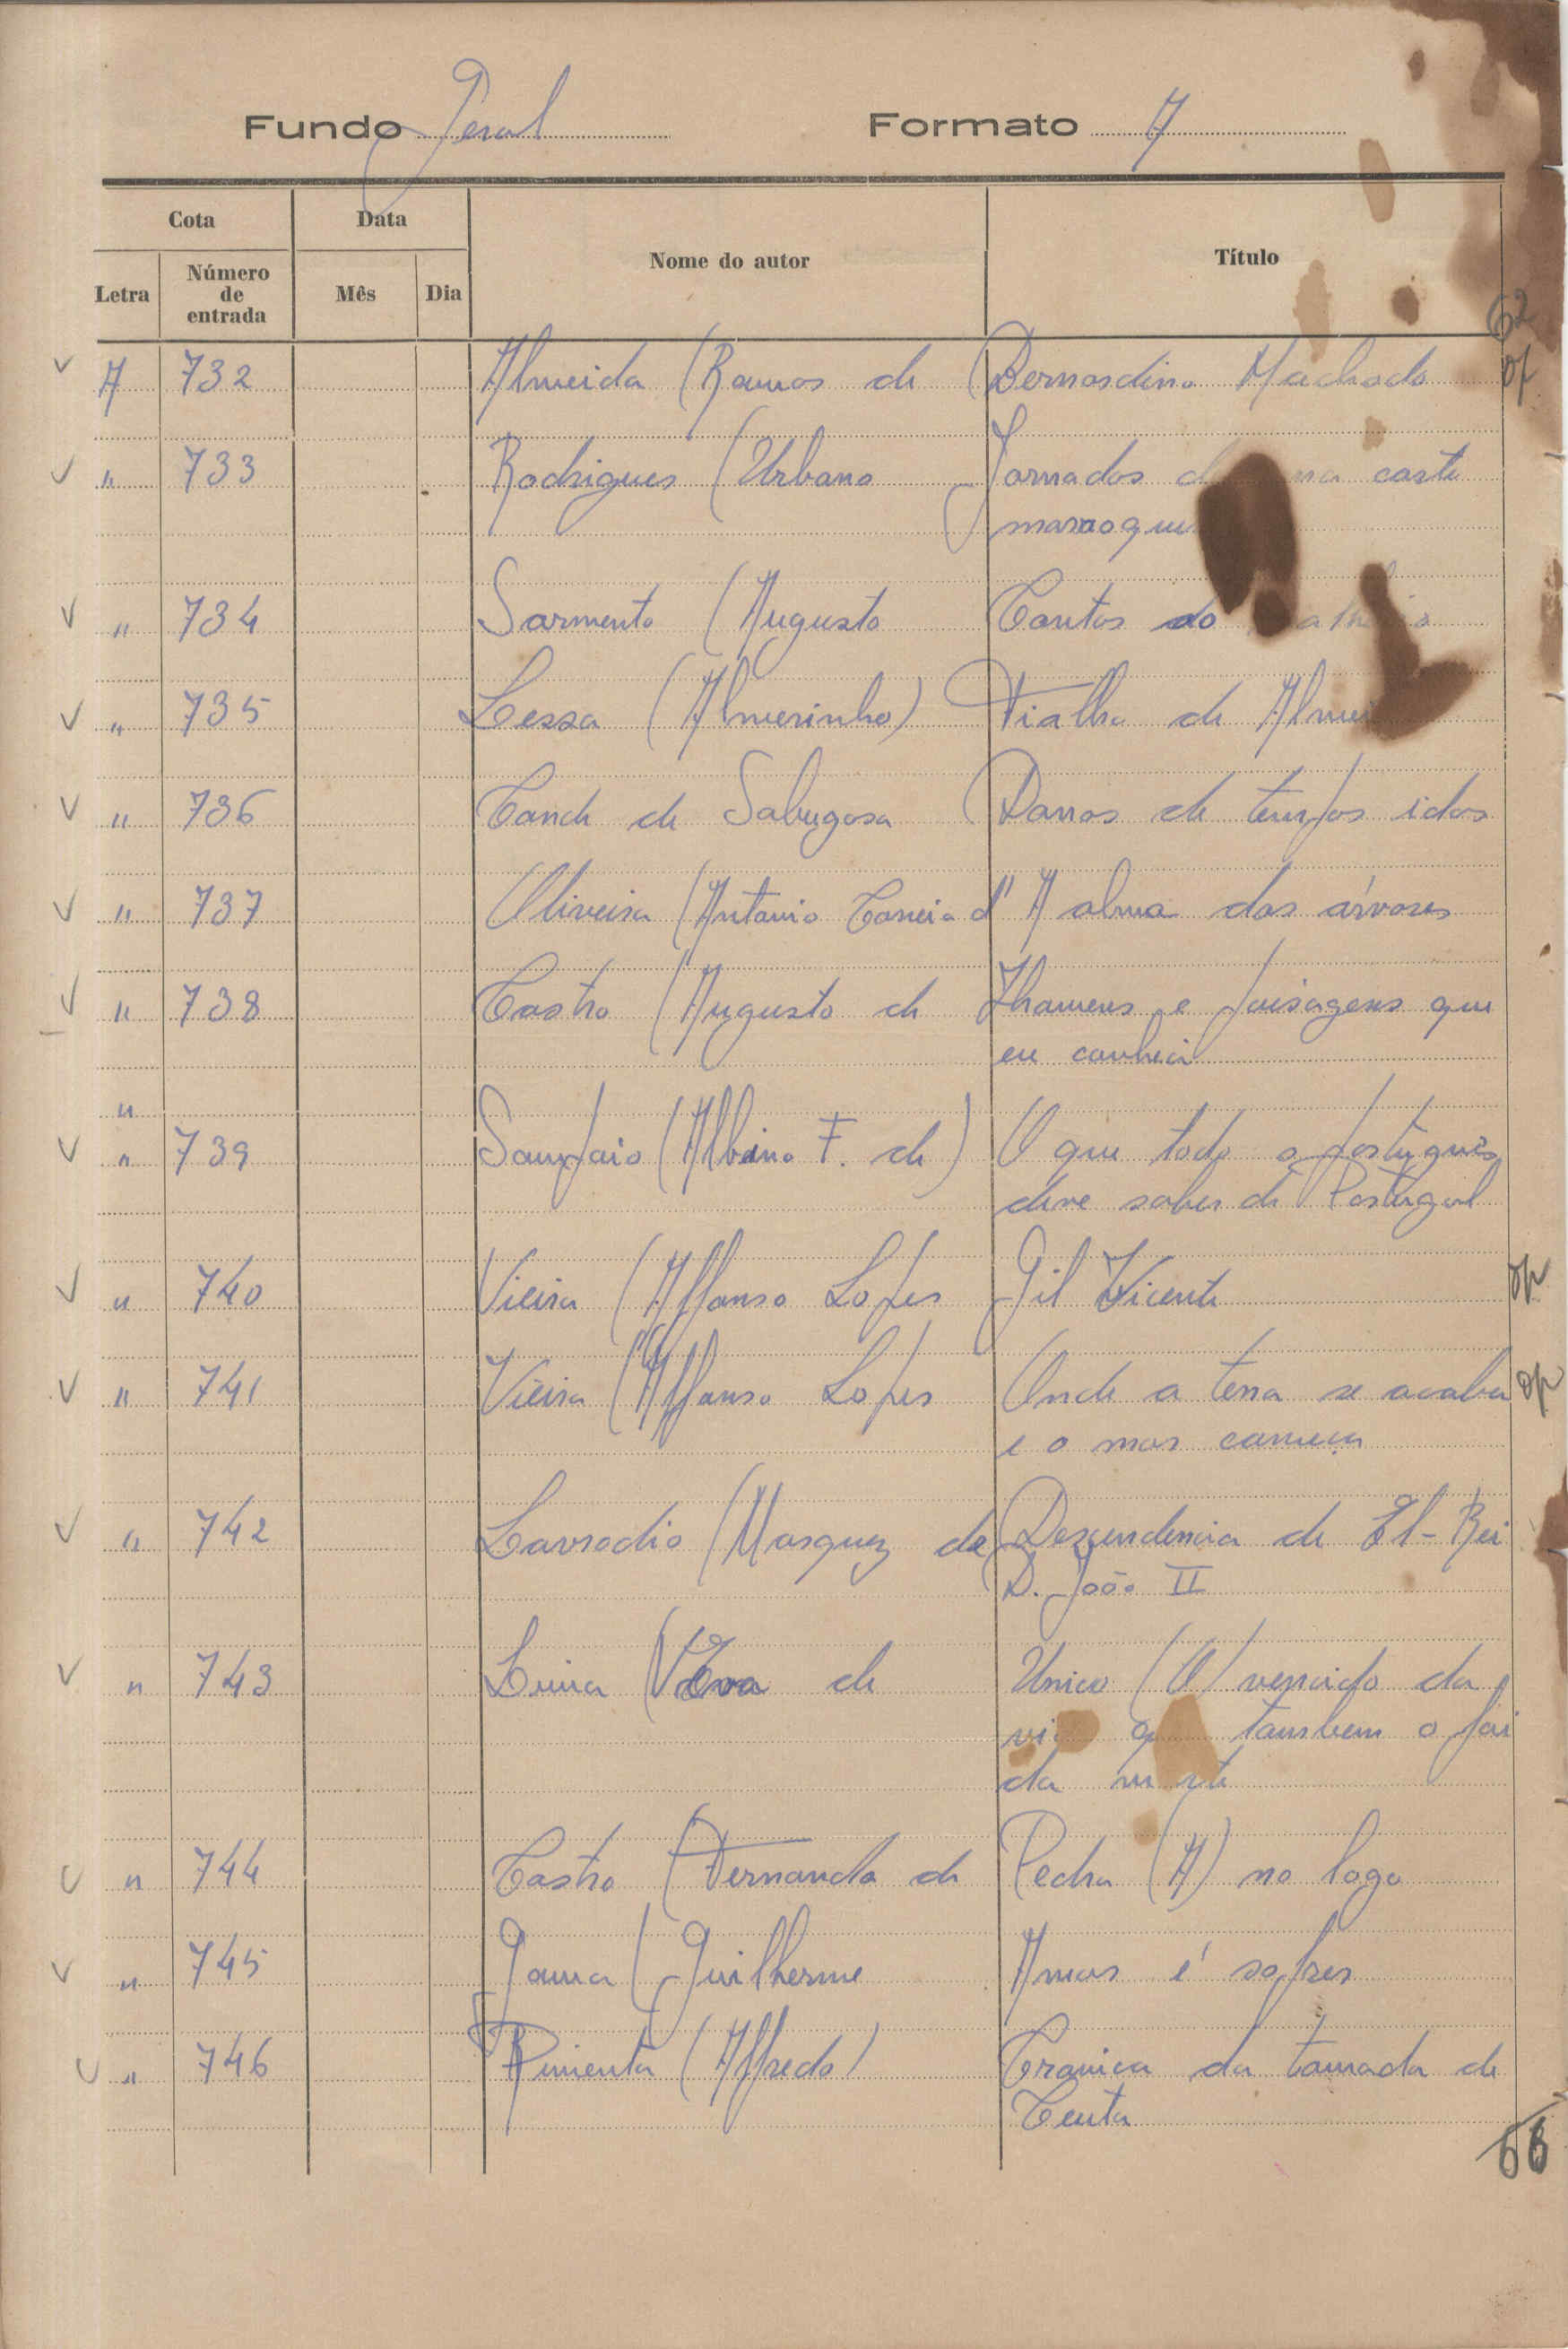 Fundo Geral Formato A
Cota Data Nome do autor Título
Letra Número de entrada Mês Dia
62
A 732 Almeida (Ramos de Bernardino Machado op
" 733 Rodrigues (Urbano Jornadas carta
" 734 Sarmento (Augusto Contos do
" 735 Lessa (Almerindo) Fialho de
" 736 Conde de Sabugosa Donas de tempos idos
" 737 Oliveira (Antonio Correia d' A alma das árvores
" 738 Castro (Augusto de Homens e paisagens que
eu conheci
"
" 739 Sampaio (Albino F. de) O que todo o português
deve saber de Portugal
" 740 Vieira (Affonso Lopes Gil Vicente op
" 741 Vieira (Affonso Lopes Onde a terra se acaba op
e o mar começa
" 742 Lavradio (Marquez de Descendencia de El-Rei
D. João II
" 743 Lima de Unico (O) vencido da
tambem o foi
da
" 744 Castro (Fernanda de Pedra (A) no lago
" 745 Gama (Guilherme Amar é sofrer
" 746 Pimenta (Alfredo) Cronica da tomada de
Ceuta